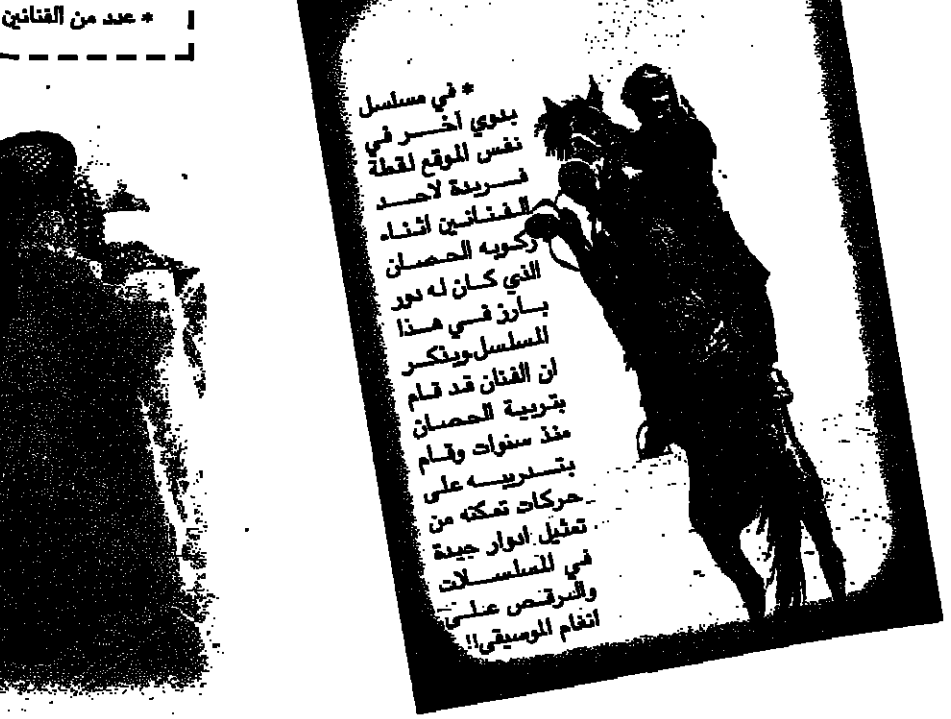 * عدد من الفنانين
* في مسلسل
بدوي آخـــر في
نفس الموقع لقطة
فـــريدة لاحـــد
الفـنـانـين اثـنـاء
ركـوبـه الـحـصـان
الذي كـــان لـه دور
بـــارز فـــي هـــذا
المسلسل.ويذكـــر
ان الفنان قد قـام
بتربيـة الـحـصـان
منذ سنوات وقـام
بـتـــدريـبـــه على
حركات تمكنه من
تمثيل ادوار جيدة
في المسلســـلات
والـرقـــص عـلـــى
انغام الموسيقى!!